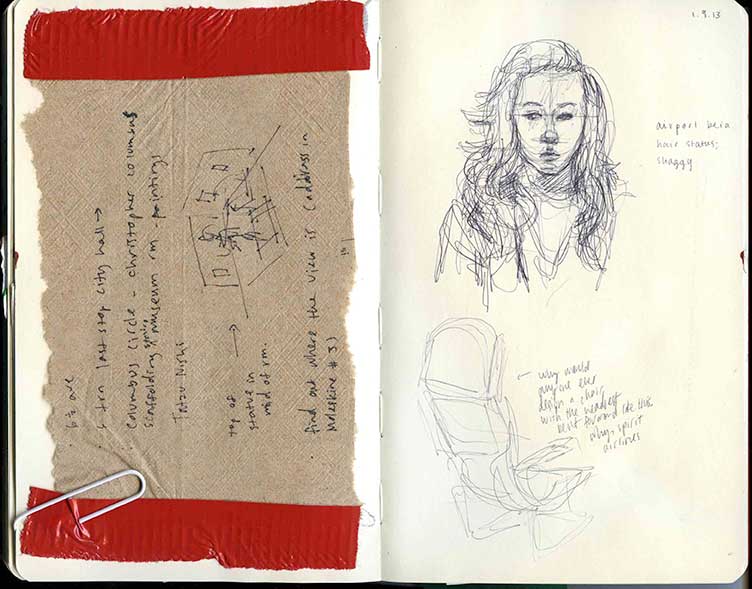 . 6½ ave
. 6 trn last stop city hall →
. columbus circle - christopher columbus
stairs
scaffolding museum rm - paintings
Tatzu Nishi
top of →
statue in
mid of rm.
. find out where the view is (address in
moleskine #3)
1.9.13
airport
hair status:
shaggy
← why would
anyone ever
design a chair
with the headrest
bent forward like this
why, spirit
airlines